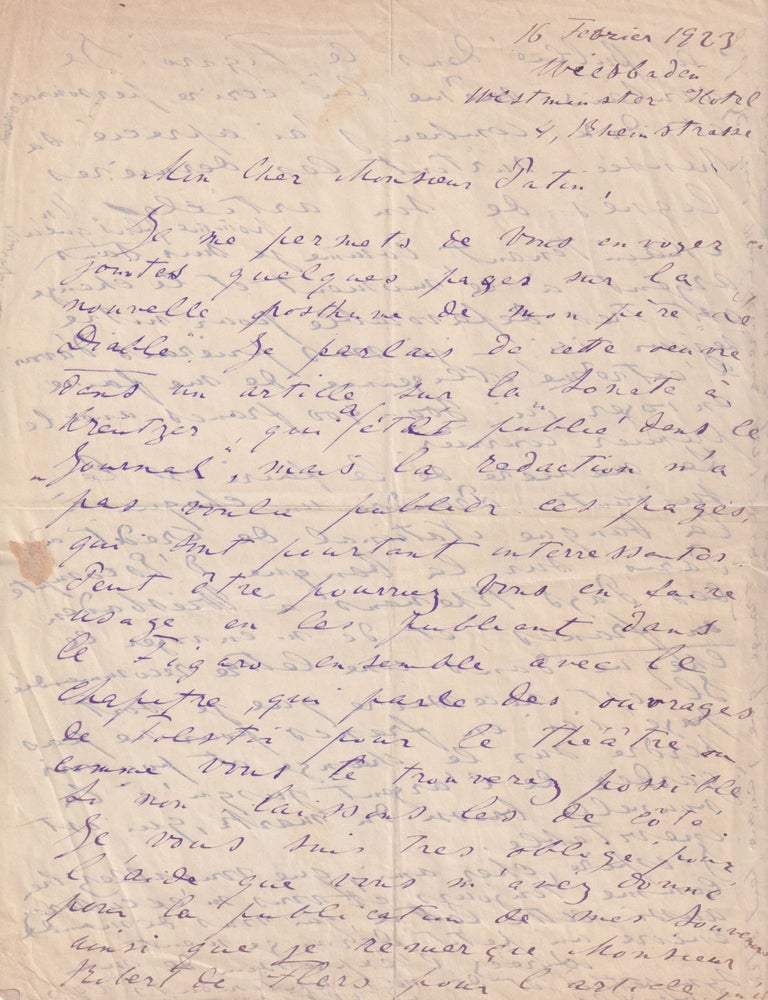 16 Fevrier 1923
Wiesbaden
Westminster Hotel
4, Rheinstrasse
Mon Cher Monsieur Patin,
Je me permets de vous envoyer ci
jointes quelques pages sur la
nouvelle posthume de mon père "Le
Diable". Je parlais de cette oeuvre
dans un article sur la "Sonate à
Kreutzer", qui a été publié dans le
"Journal", mais la redaction n'a
pas voulu publier ces pages,
qui sont pourtant interressantes.
Peut être pourriez vous en faire
usage en les publient dans
le Figaro ensemble avec le
Chapitre, qui parle des ouvrages
de Tolstoi pour le Théâtre ou
comme vous le trouverez possible
Si non laissons les de côté
Je vous suis tres obligé pour
l'aide que vous m'avez donné
pour la publication de mes Souvenirs
ainsi que je remerçie Monsieur
Robert de Flers pour l'article qu'il